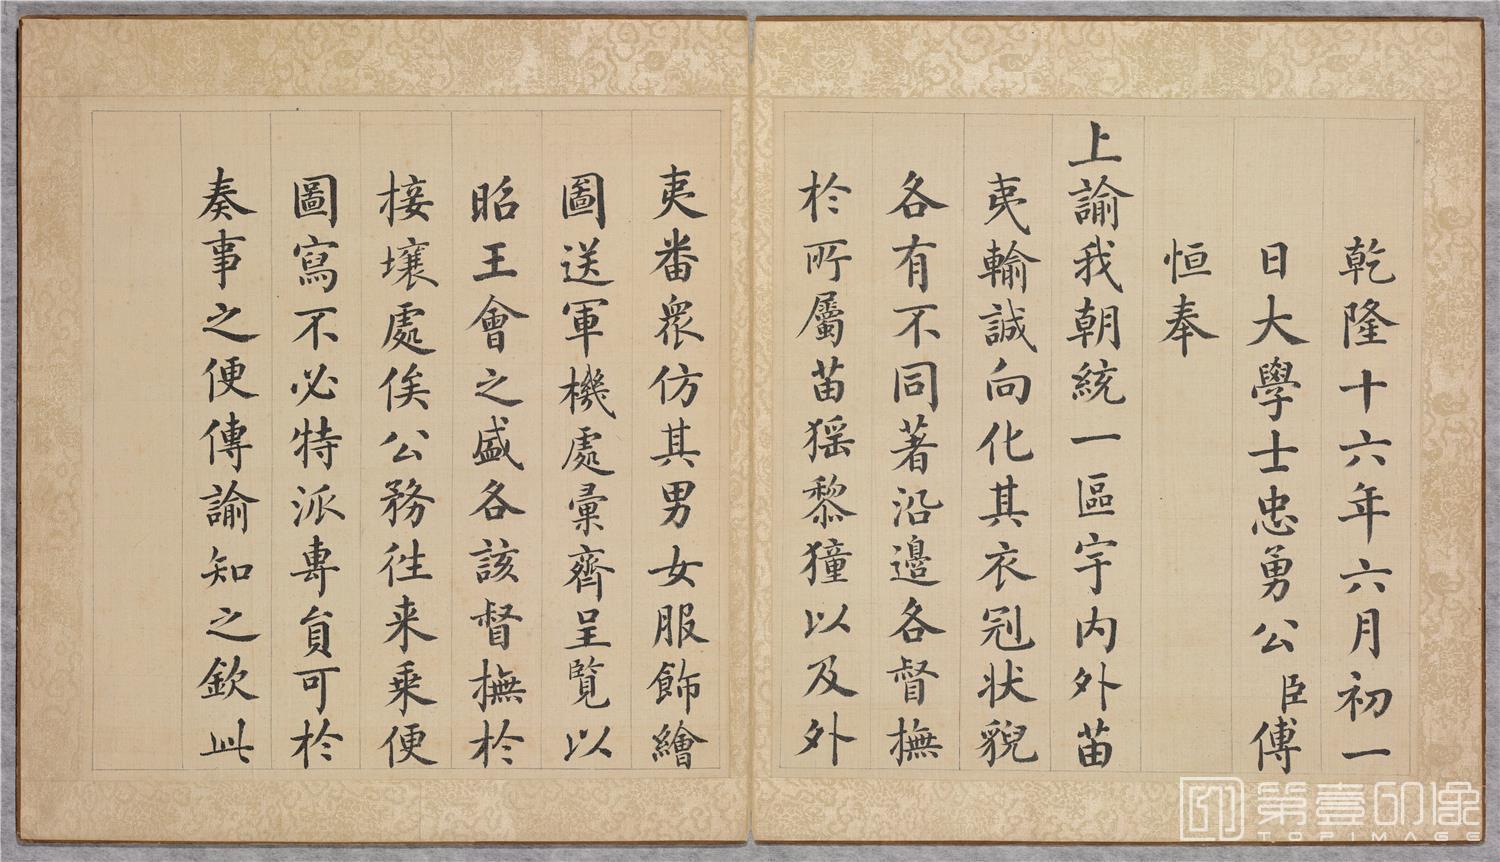 乾隆十六年六月初一
日大學士忠勇公臣傅
恒奉
上諭我朝統一區宇内外苗
夷輸誠向化其衣冠状貌
各有不同著沿邊各督撫
於所屬苗猺黎獞以及外
夷番衆仿其男女服飾繪
圖送軍機處彙齊呈覽以
昭王會之盛各該督撫於
接壤處俟公務往来乗便
圖寫不必特派專員可於
奏事之便傳諭知之欽此
第壹印像
TOPIMAGE